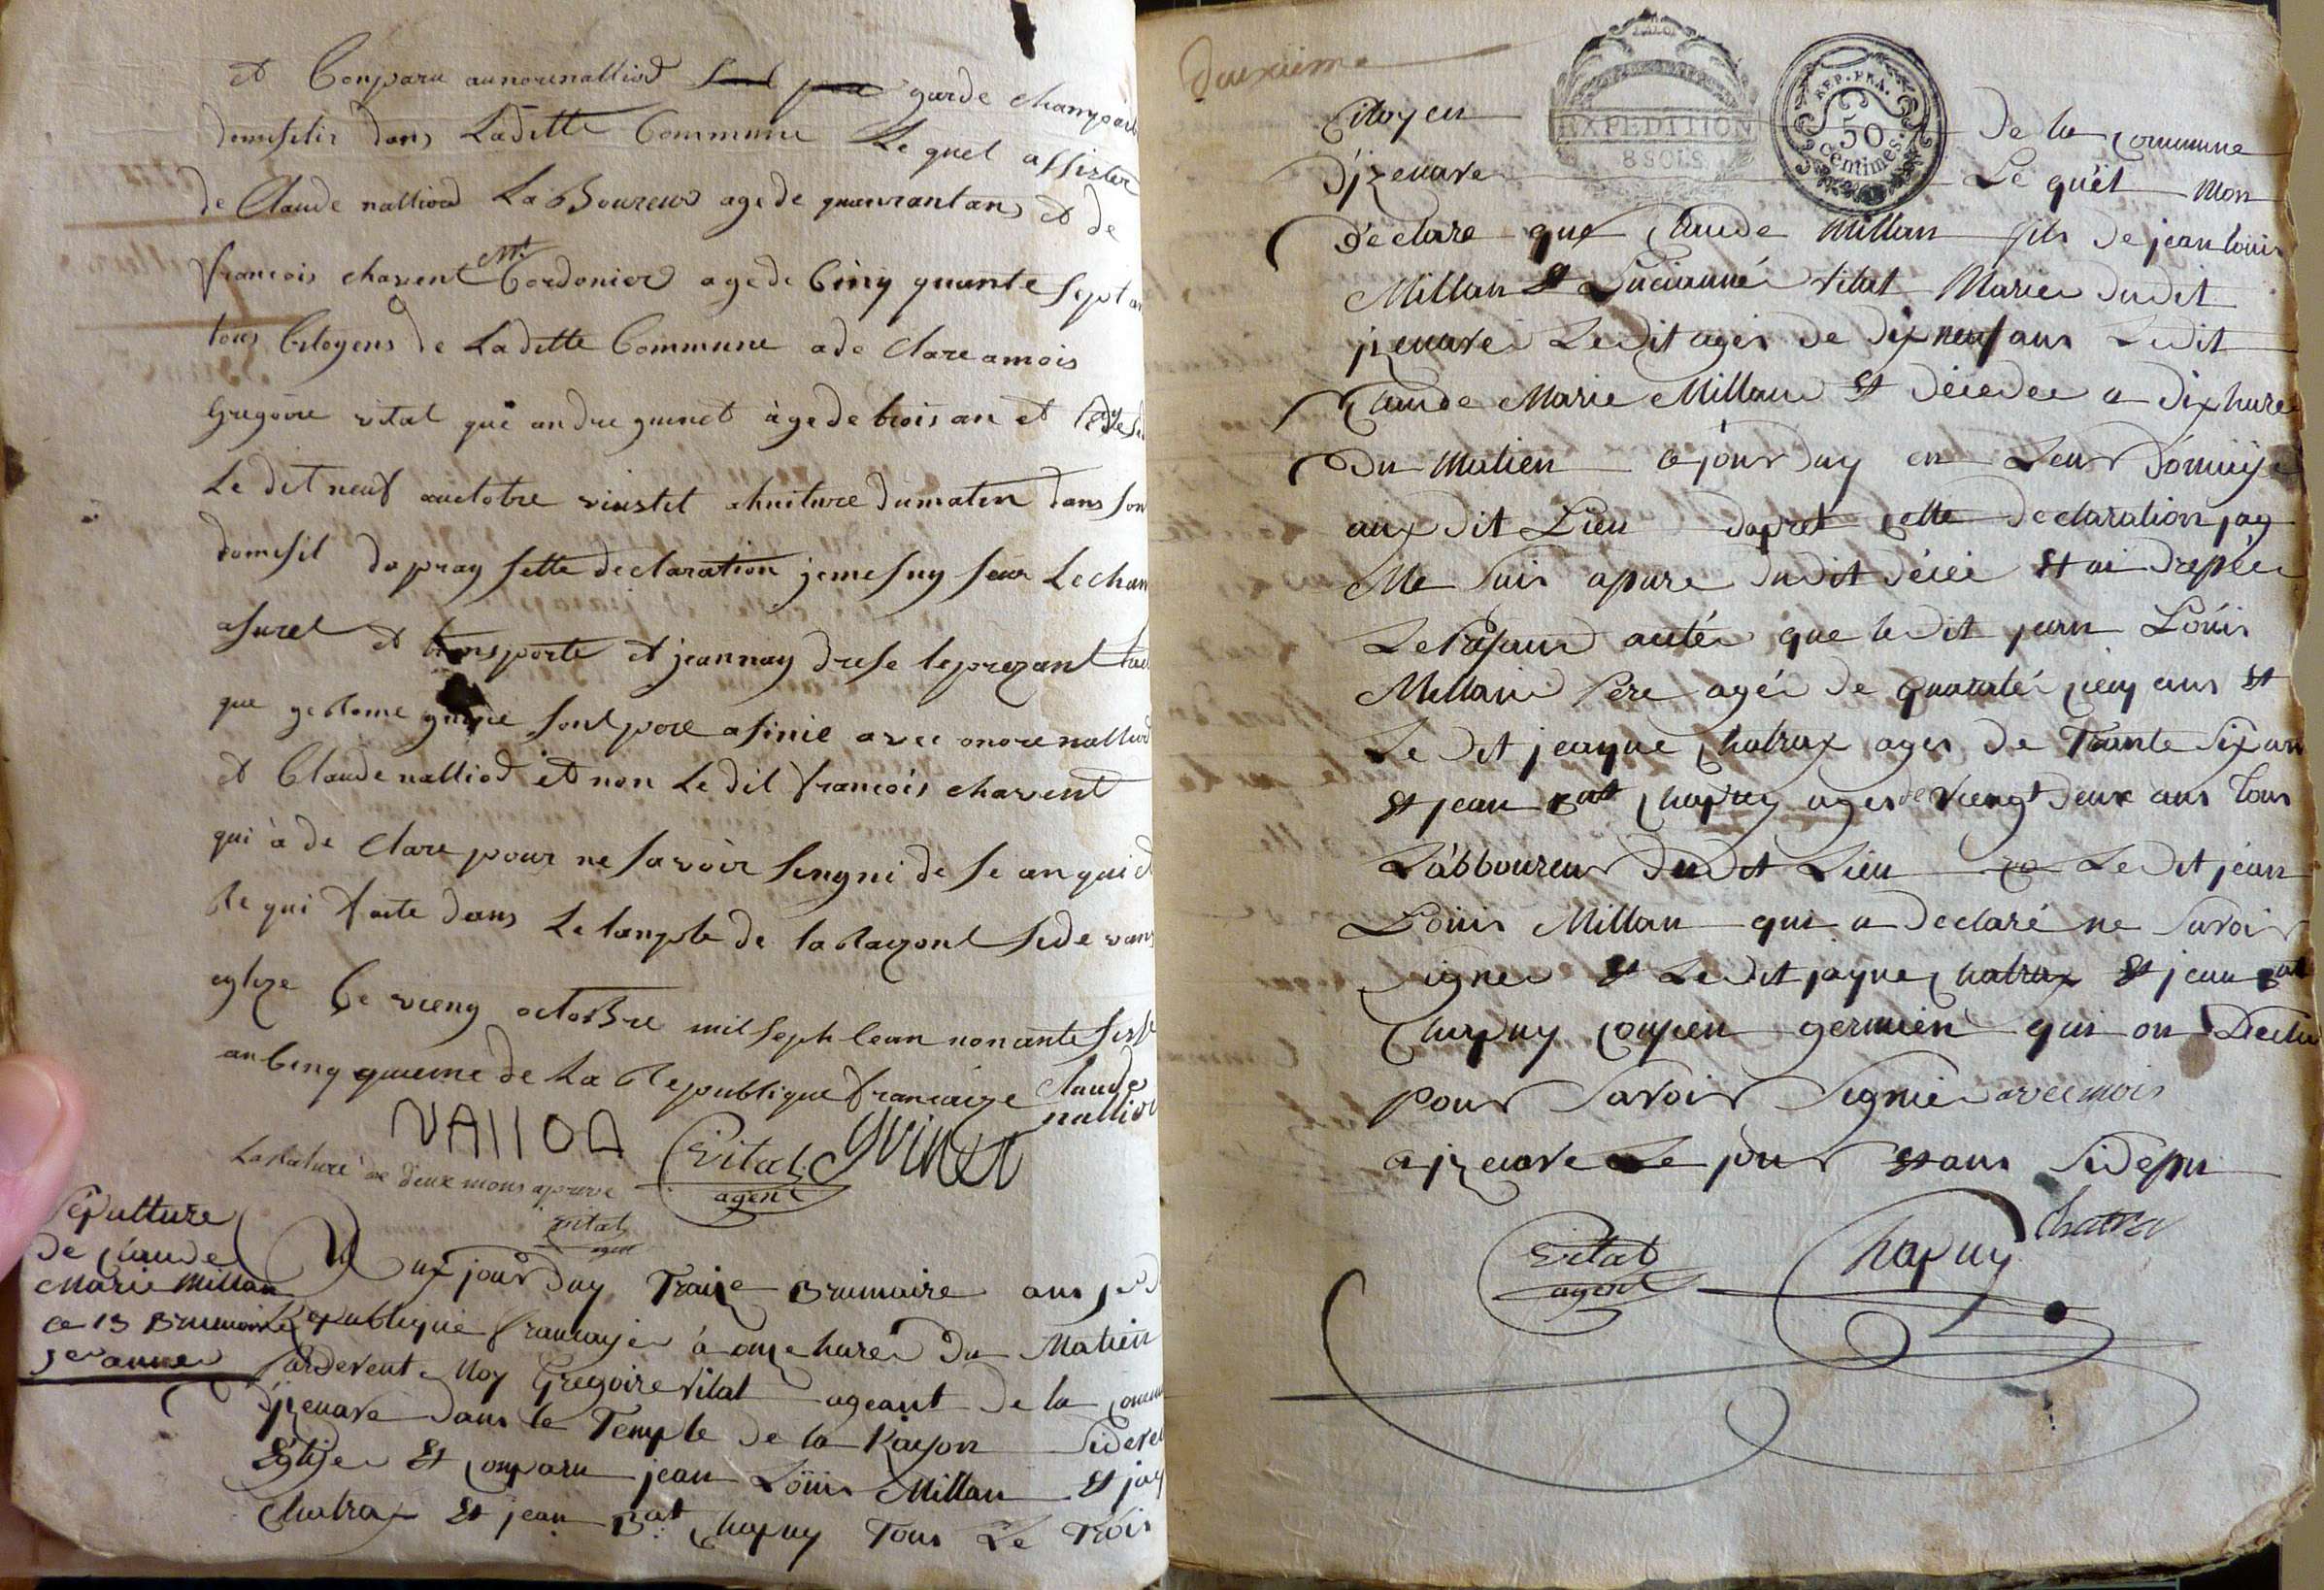 et Conparu aunorenalliod garde champait
domisilis dans Ladette Commune Le quel assister
de Claude nalliod LaBoureur age de quanrantans et de
francois charent Mt Cordonier age de Cinq quante sept an
tous Citoyens de Ladette Commune a de Clare amois
Gregoire vital que andre guinet àge de trois an et
Le dit neuf auctobre viustit ahuiture dumaten dans son
domisil dapray sette declaration jemesuy seur Lechan
asurel et transporte et jeannay drese leprezant
que gedome guine sont pore asinie avec onore nalliod
et Claude nalliod et non Le dit francois charent
qui à de Clare pour ne savoir sengni de se anqui et
Re qui faite dans Le lample de la Rayzont side vans
eglize Ce vieng octoBre mil seph Cean nonante sisse
an Cenq quieme de La Republique francaize Claude
nalliod
VAllOD
Vital agent
guinet
La Rature de deux mons aprove
vital
agent
Sépulture
de Claude
Marie Millan
ce 13 Brumaire
5er annee
Aux jour duy Traize Brumaire ans 5er d
Republique francayse à onze hure du Matien
Pardevent Moy Gregoire Vital ageant de la comm
d'jzenave dans le Temple de la Rayson sidevet
Eglise Et comparu jean Loüis Millan Et jay
Chatrax Et jean Bat Chapuy Tous Le Trois
deuxieme
EXPEDITION
8 SOLS
REP. FRA.
50
centimes.
Citoyen De la commune
D'jzenave Le quel mon
Declare que Claude Millan fils de jean loüis
Millan Et Vitat Marie dudit
jzenave Ledit ages de dix neuf ans Ledit
Claude Marie Millan Et décedee a dix hure
Du Matien ojourduy en Leur Domicije
aux dit Lieu dapret cette declaration jay
Me suis apure dudit décéé Et ai drepée
Le Present auté que le dit jean Loüis
Millan Père agée de quaraté cienq ans Et
Le dit jeayue Chatrax ages de Trante Six an
Et jean Bat Chapuy ages de Viengt deux ans tous
Labboureur dudit Lieu Le dit jean
Loüis Millan qui a declaré ne savoir
signer Et Ledit jayue Chatrax Et jean Bat
Chapuy coupein germien qui on Decla
pour Savoir Signie avec mois
a jzenave Le jour Et ans Sidepu
Vital
agent
Chapuy
Chatra